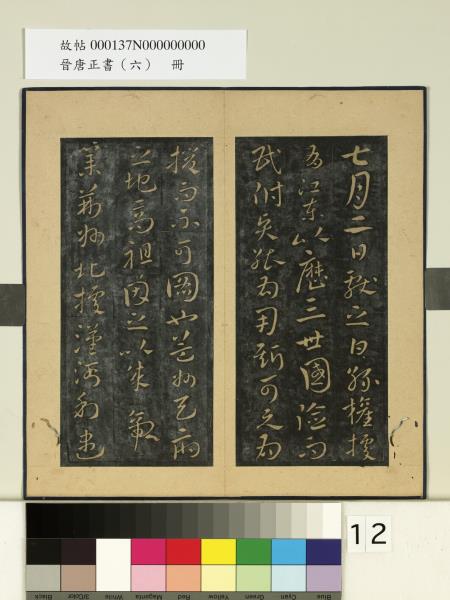 故帖 000137N000000000
晉唐正書（六） 冊
七月二日獻之白孫權據
有江東以歷三世國險而
民附賢能為用斯可以為
援而不可圖也益州
之地高祖因之以成帝
業荊州北據漢沔利盡
12
Blue Cyan Green Yellow Red Magenta White 3/Color Black